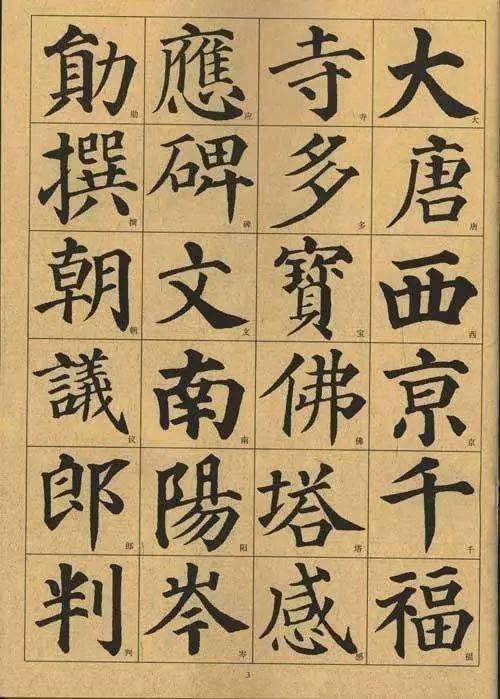 大唐西亰千福
大唐西京千福
寺多寶佛塔感
寺多宝佛塔感
應碑文南陽岑
应碑文南阳岑
勛撰朝議郎判
勋撰朝议郎判
3